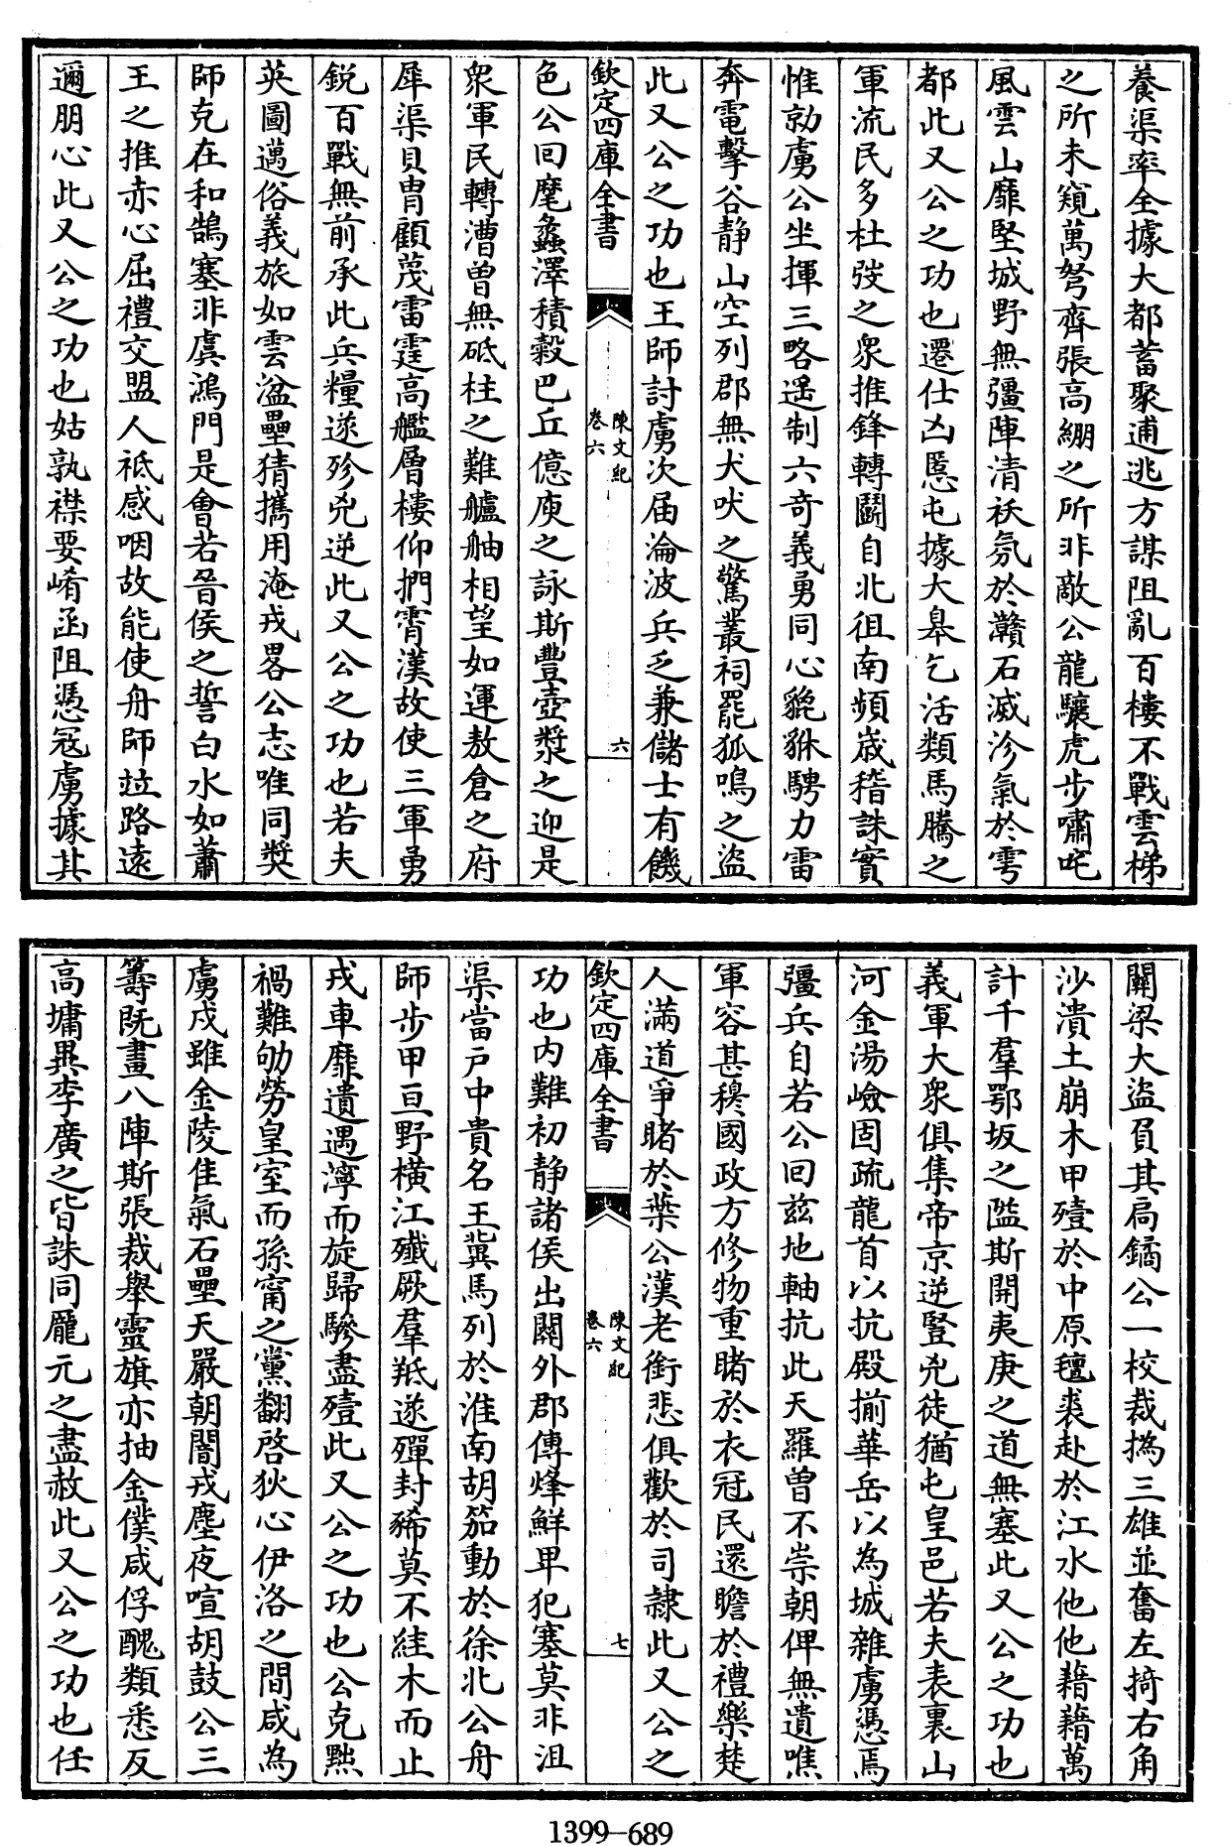 養渠率全據大都蓄聚逋逃方謀阻亂百樓不戰雲梯
之所未窺萬弩齊張高綳之所非敵公龍驤虎步嘯咤
風雲山靡堅城野無彊陣清祅氛於灨石滅沴氣於雩
都此又公之功也遷仕凶慝屯據大臯乞活類馬騰之
軍流民多杜弢之衆推鋒轉鬭自北徂南頻嵗稽誅實
惟勍虜公坐揮三略遥制六奇義勇同心貔貅騁力雷
奔電擊谷静山空列郡無犬吠之驚叢祠罷狐鳴之盜
此又公之功也王師討虜次届淪波兵乏兼儲士有饑
欽定四庫全書
陳文紀
卷六
六
色公回麾蠡澤積穀巴丘億庾之詠斯豐壺漿之迎是
衆軍民轉漕曽無砥柱之難艫舳相望如運敖倉之府
犀渠貝冑顧蔑雷霆高艦層樓仰捫霄漢故使三軍勇
鋭百戰無前承此兵糧遂殄兇逆此又公之功也若夫
英圖邁俗義旅如雲湓壘猜攜用淹戎畧公志唯同奬
師克在和鵠塞非虞鴻門是會若晉侯之誓白水如蕭
王之推赤心屈禮交盟人祇感咽故能使舟師竝路遠
邇朋心此又公之功也姑孰襟要崤函阻憑冦虜據其
關梁大盜負其扃鐍公一校裁撝三雄並奮左掎右角
沙潰土崩木甲殪於中原氊裘赴於江水他他藉藉萬
計千羣鄂坂之隘斯開夷庚之道無塞此又公之功也
義軍大衆俱集帝京逆豎兇徒猶屯皇邑若夫表裏山
河金湯嶮固疏龍首以抗殿揃華岳以為城雜虜憑焉
彊兵自若公回兹地軸抗此天羅曽不崇朝俾無遺噍
軍容甚穆國政方修物重睹於衣冠民還瞻於禮樂楚
人滿道爭睹於葉公漢老銜悲俱歡於司隸此又公之
欽定四庫全書
陳文紀
卷六
七
功也内難初静諸侯出關外郡傳烽鮮卑犯塞莫非沮
渠當户中貴名王冀馬列於淮南胡笳動於徐北公舟
師步甲亘野横江殲厥羣羝遂殫封豨莫不絓木而止
戎車靡遺遇濘而旋歸驂盡殪此又公之功也公克黜
禍難劬勞皇室而孫甯之黨翻啓狄心伊洛之間咸為
虜戍雖金陵佳氣石壘天嚴朝闇戎塵夜喧胡鼓公三
籌旣畫八陣斯張裁舉靈旗亦抽金僕咸俘醜類悉反
高墉異李廣之皆誅同龎元之盡赦此又公之功也任
1399—689